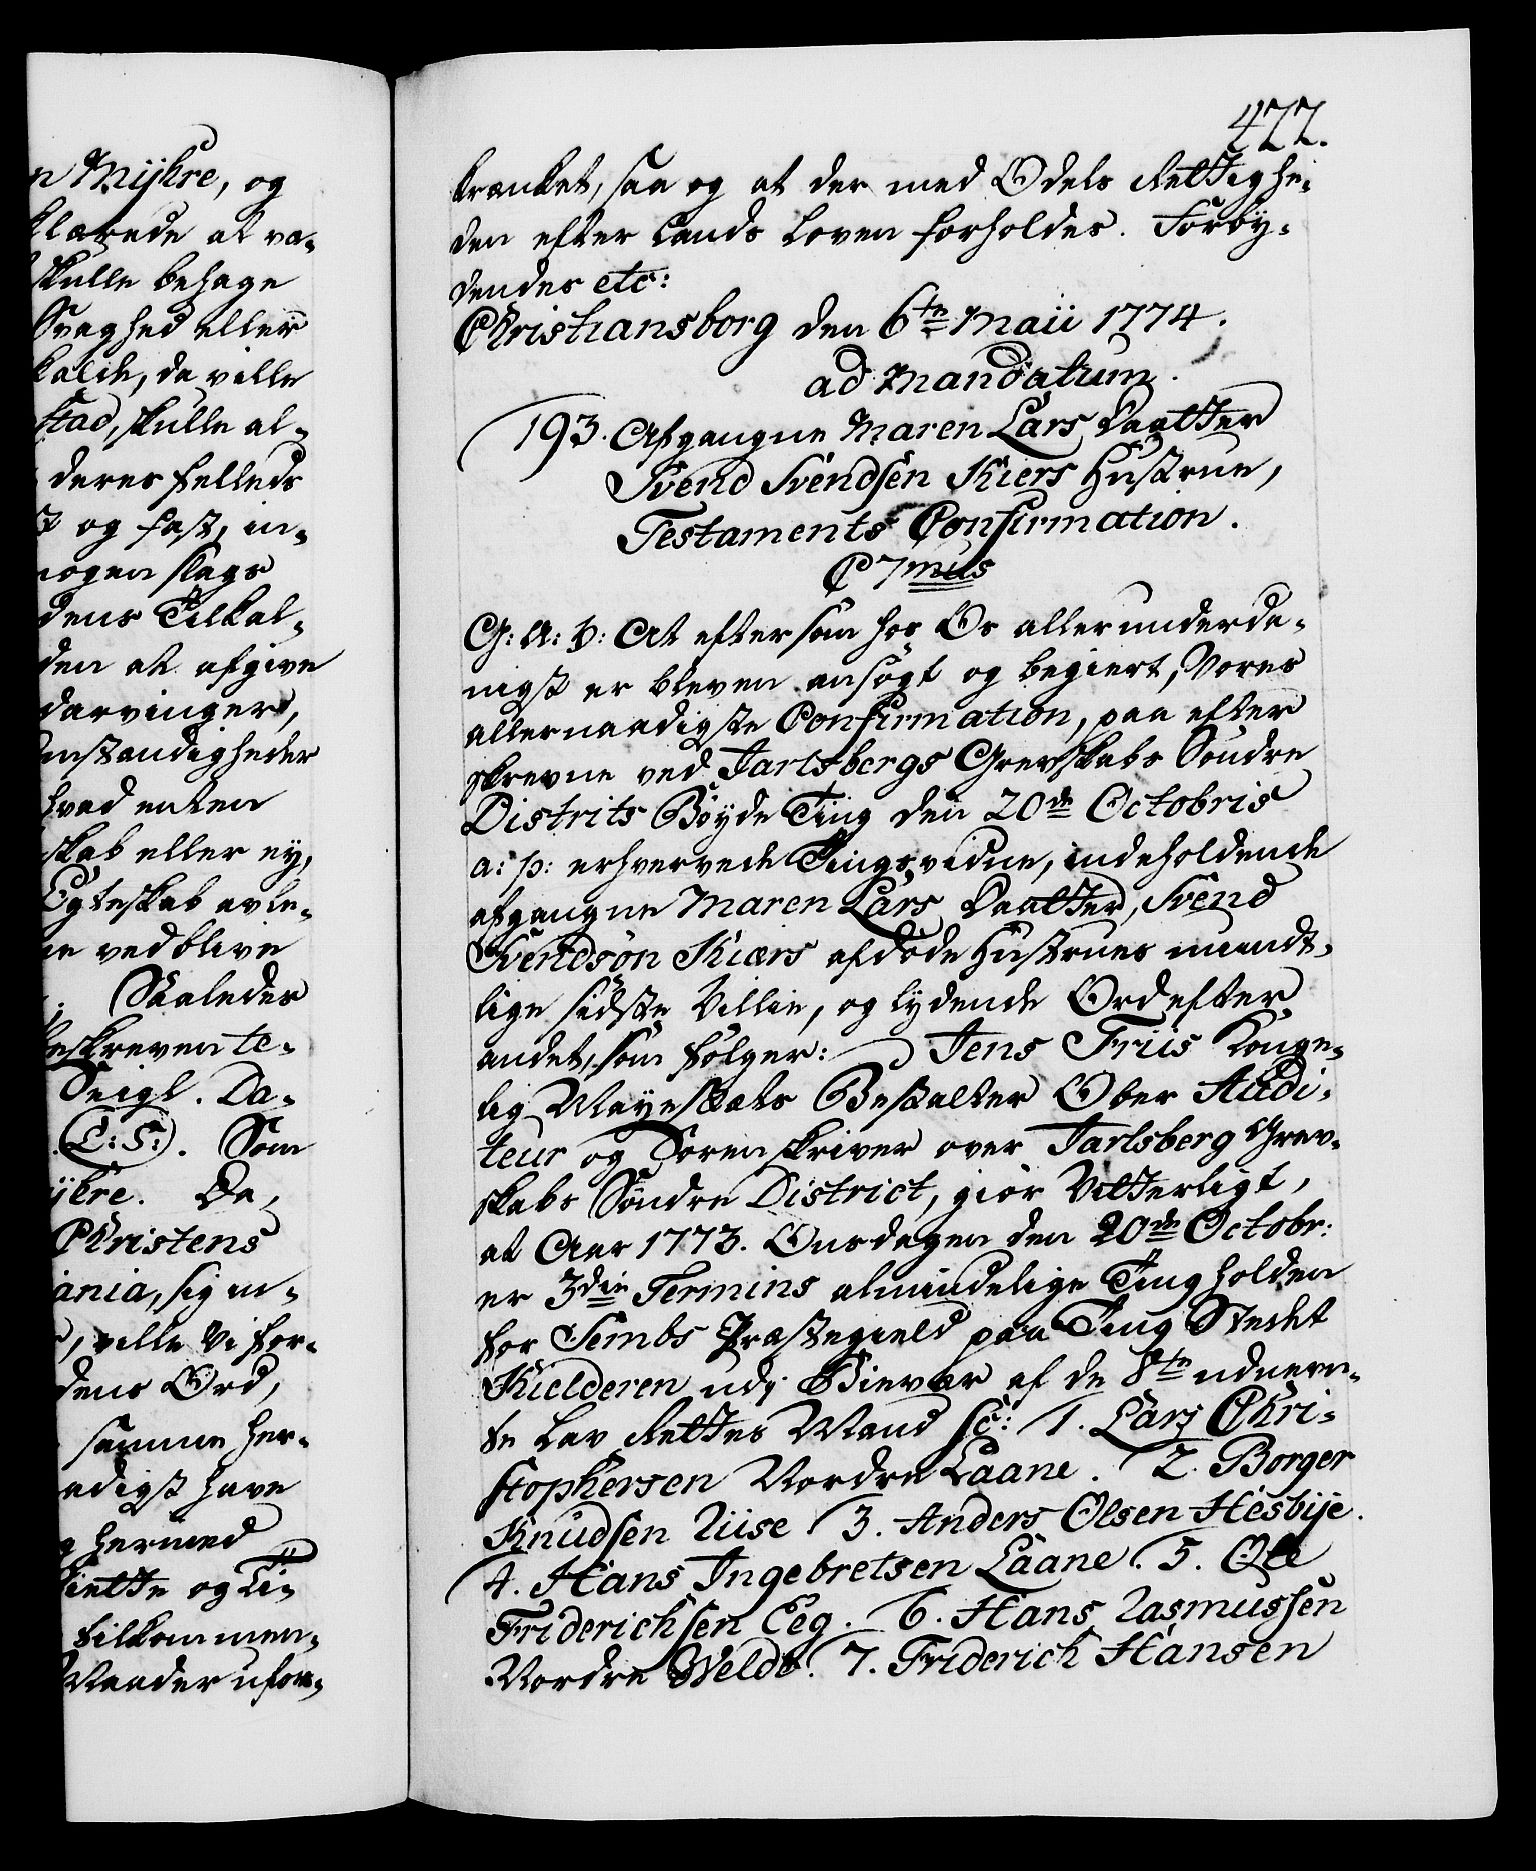 n Mijhre, og
klærede at va-
skulle behage
Svaghed eller
kalde, da ville
stad, skulle al-
deres felleds
t og fast, in-
nogen slags
dens Tilkal-
den at afgive
darvinger,
mstændigheder
hvad enten
skab eller ey,
Egteskab avle-
ne ved blive
Saaledes
beskreven te-
Seigl. Da-
(L: S:). Som
ijhre. Da,
Christens
ania, sig in-
, ville Vi for-
dens Ord,
samme her-
adigst have
g hermed
iette og Ti-
tilkommen-
Maader ufor-
477.
krænket, saa og at der med Odels Rettighe-
den efter Lands Loven forholdes. Forby-
dendes etc:
Christiansborg den 6te Maii 1774.
ad Mandatum.
193. Afgangne Maren Lars Daatter
Svend Svendsen Kiers Hustrue,
Testaments Confirmation.
C 7mus
G: A: V: At eftersom hos Os allerunderda-
nigst er bleven ansøgt og begiert, Vores
allernaadigste Confirmation, paa efter
skrevne ved Jarlsbergs Grevskabs Søndre
Distrits Bøyde Ting den 20de Octobris
a: p: erhvervede Tingsvidne, indeholdende
afgangne Maren Lars Daatter, Svend
Svendsøn Kiærs afdøde Hustrues mundt-
lige sidste Villie, og lydende Ord efter
andet, som følger: Jens Friis Konge-
lig Mayestæts Bestalter Ober Audi-
teur og Sorenskriver over Jarlsberg Grev-
skabs Søndre District, giør Vitterligt,
at Aar 1773. Onsdagen den 20de Octobr:
er 3die Termins almindelige Ting holden
for Sembs Præstegield paa Ting Stedet
Kielderen udj Biever af de 8te udnevn-
te Lav Rettes Mænd sc: 1. Lars Chri-
stophersen Nordre Laane. 2. Borger
Knudsen Riise 3. Anders Olsen Hesbije.
4. Hans Ingebretsen Laane. 5. Ole
Friderichsen Eeg. 6. Hans Rasmussen
Nordre Weldt. 7. Friderich Hansen